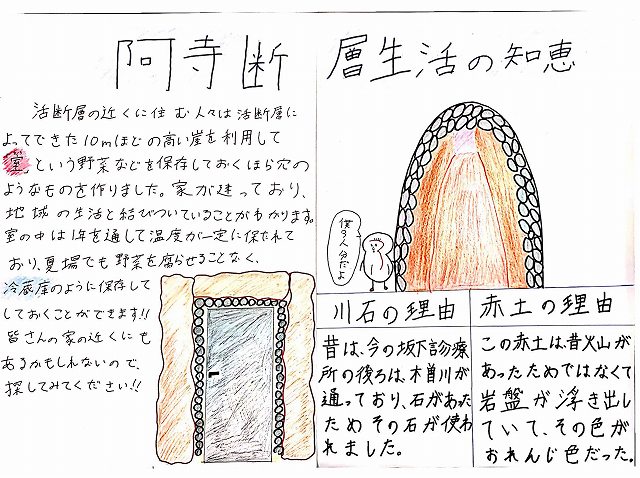 阿寺断層生活の知恵
活断層の近くに住む人々は活断層に
よってできた10mほどの高い崖を利用して
「室」という野菜などを保存しておくほら穴の
ようなものを作りました。家が建っており、
地域の生活と結びついていることがわかります。
室の中は1年を通して温度が一定に保たれて
おり、夏場でも野菜を腐らせることなく、
冷蔵庫のように保存して
しておくことができます!!
皆さんの家の近くにも
あるかもしれないので、
探してみてください!!
僕の人分だよ
川石の理由
昔は、今の坂下診療
所の後ろは、木曽川が
通っており、石があった
ためその石が使わ
れました。
赤土の理由
この赤土は、昔火山が
あったためではなくて
岩盤が浮き出し
ていて、その色が
おれんじ色だった。